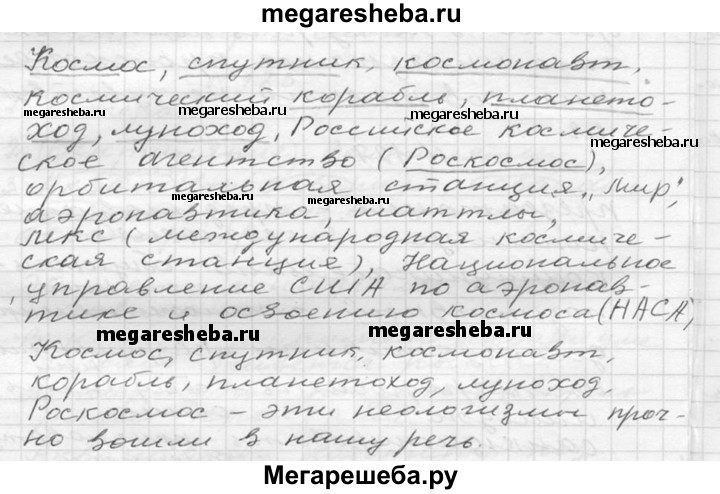 megaresheba.ru
Космос, спутник, космонавт,
космический корабль, плането-
megaresheba.ru
megaresheba.ru
ход, луноход, Российское космиче-
megaresheba.ru
ское агентство (Роскосмос),
орбитальная станция „Мир",
megaresheba.ru
аэронавтика, шаттлы,
МКС (международная космиче-
ская станция), Национальное
управление США по аэронав-
тике и освоению космоса (НАСА),
megaresheba.ru
megaresheba.ru
Космос, спутник, космонавт,
корабль, планетоход, луноход,
Роскосмос – эти неологизмы проч-
но вошли в нашу речь.
Мегарешеба.ру